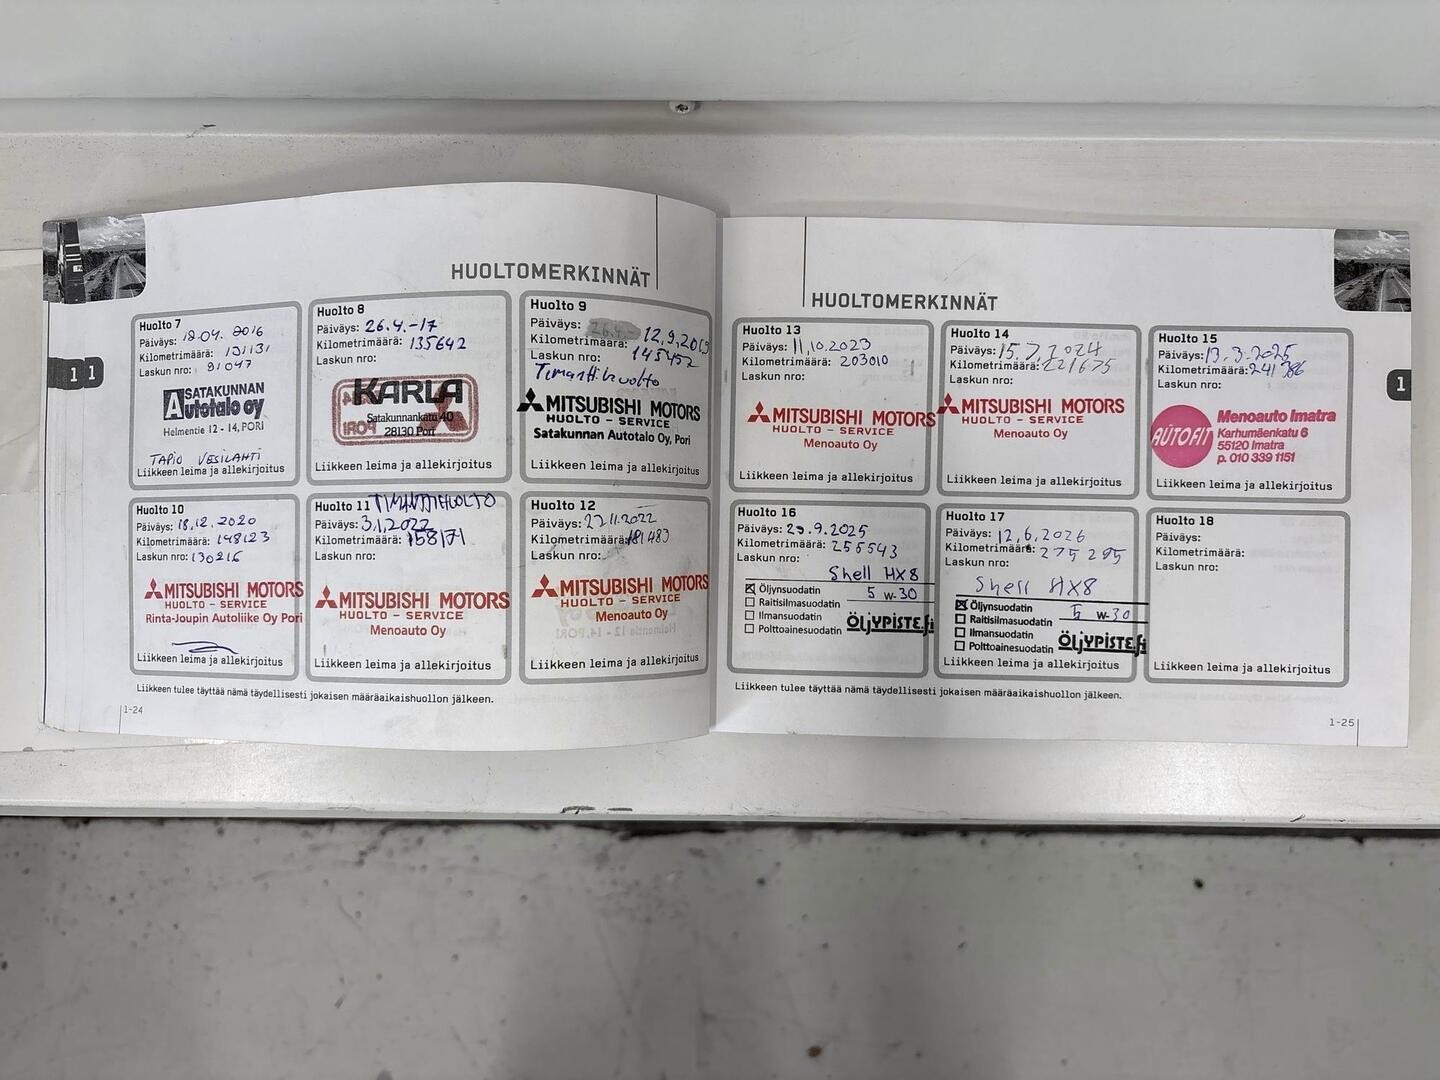 HUOLTOMERKINNÄT
1 1
Huolto 7
Päiväys: 18.04. 2016
Kilometrimäärä: 131131
Laskun nro: 91047
SATAKUNNAN
Autotalo oy
Helmentie 12 - 14, PORI
TAPIO VESILAHTI
Liikkeen leima ja allekirjoitus
Huolto 8
Päiväys: 26.4.-17
Kilometrimäärä: 135642
Laskun nro:
KARLA
Satakunnankatu 40
28130 Pori
Liikkeen leima ja allekirjoitus
Huolto 9
Päiväys: 12,9,2019
Kilometrimäärä: 145452
Laskun nro:
Timanttihuolto
MITSUBISHI MOTORS
HUOLTO - SERVICE
Satakunnan Autotalo Oy, Pori
Liikkeen leima ja allekirjoitus
Huolto 10
Päiväys: 18,12.2020
Kilometrimäärä: 148123
Laskun nro: 130216
MITSUBISHI MOTORS
HUOLTO - SERVICE
Rinta-Joupin Autoliike Oy Pori
Liikkeen leima ja allekirjoitus
Huolto 11 TIMANTTIHUOLTO
Päiväys: 3,1,2022
Kilometrimäärä: 158171
Laskun nro:
MITSUBISHI MOTORS
HUOLTO - SERVICE
Menoauto Oy
Liikkeen leima ja allekirjoitus
Huolto 12
Päiväys: 22.11.2022
Kilometrimäärä: 181483
Laskun nro:
MITSUBISHI MOTORS
HUOLTO - SERVICE
Menoauto Oy
Liikkeen leima ja allekirjoitus
Liikkeen tulee täyttää nämä täydellisesti jokaisen määräaikaishuollon jälkeen.
1-24
HUOLTOMERKINNÄT
1
Huolto 13
Päiväys: 11,10.2023
Kilometrimäärä: 203010
Laskun nro:
MITSUBISHI MOTORS
HUOLTO - SERVICE
Menoauto Oy
Liikkeen leima ja allekirjoitus
Huolto 14
Päiväys: 15.7,2024
Kilometrimäärä: 221675
Laskun nro:
MITSUBISHI MOTORS
HUOLTO - SERVICE
Menoauto Oy
Liikkeen leima ja allekirjoitus
Huolto 15
Päiväys: 13.3.2025
Kilometrimäärä: 241786
Laskun nro:
AUTOFIT
Menoauto Imatra
Karhumäenkatu 6
55120 Imatra
p. 010 339 1151
Liikkeen leima ja allekirjoitus
Huolto 16
Päiväys: 23.9.2025
Kilometrimäärä: 255543
Laskun nro:
Shell HX8
Öljynsuodatin 5 W-30
Raitisilmasuodatin
Ilmansuodatin
Polttoainesuodatin
ÖLJYPISTE.fi
Huolto 17
Päiväys: 12,6,2026
Kilometrimäärä: 275295
Laskun nro:
Shell HX8
Öljynsuodatin
Raitisilmasuodatin 5 W-30
Ilmansuodatin
Polttoainesuodatin
ÖLJYPISTE.fi
Liikkeen leima ja allekirjoitus
Huolto 18
Päiväys:
Kilometrimäärä:
Laskun nro:
Liikkeen leima ja allekirjoitus
Liikkeen tulee täyttää nämä täydellisesti jokaisen määräaikaishuollon jälkeen.
1-25